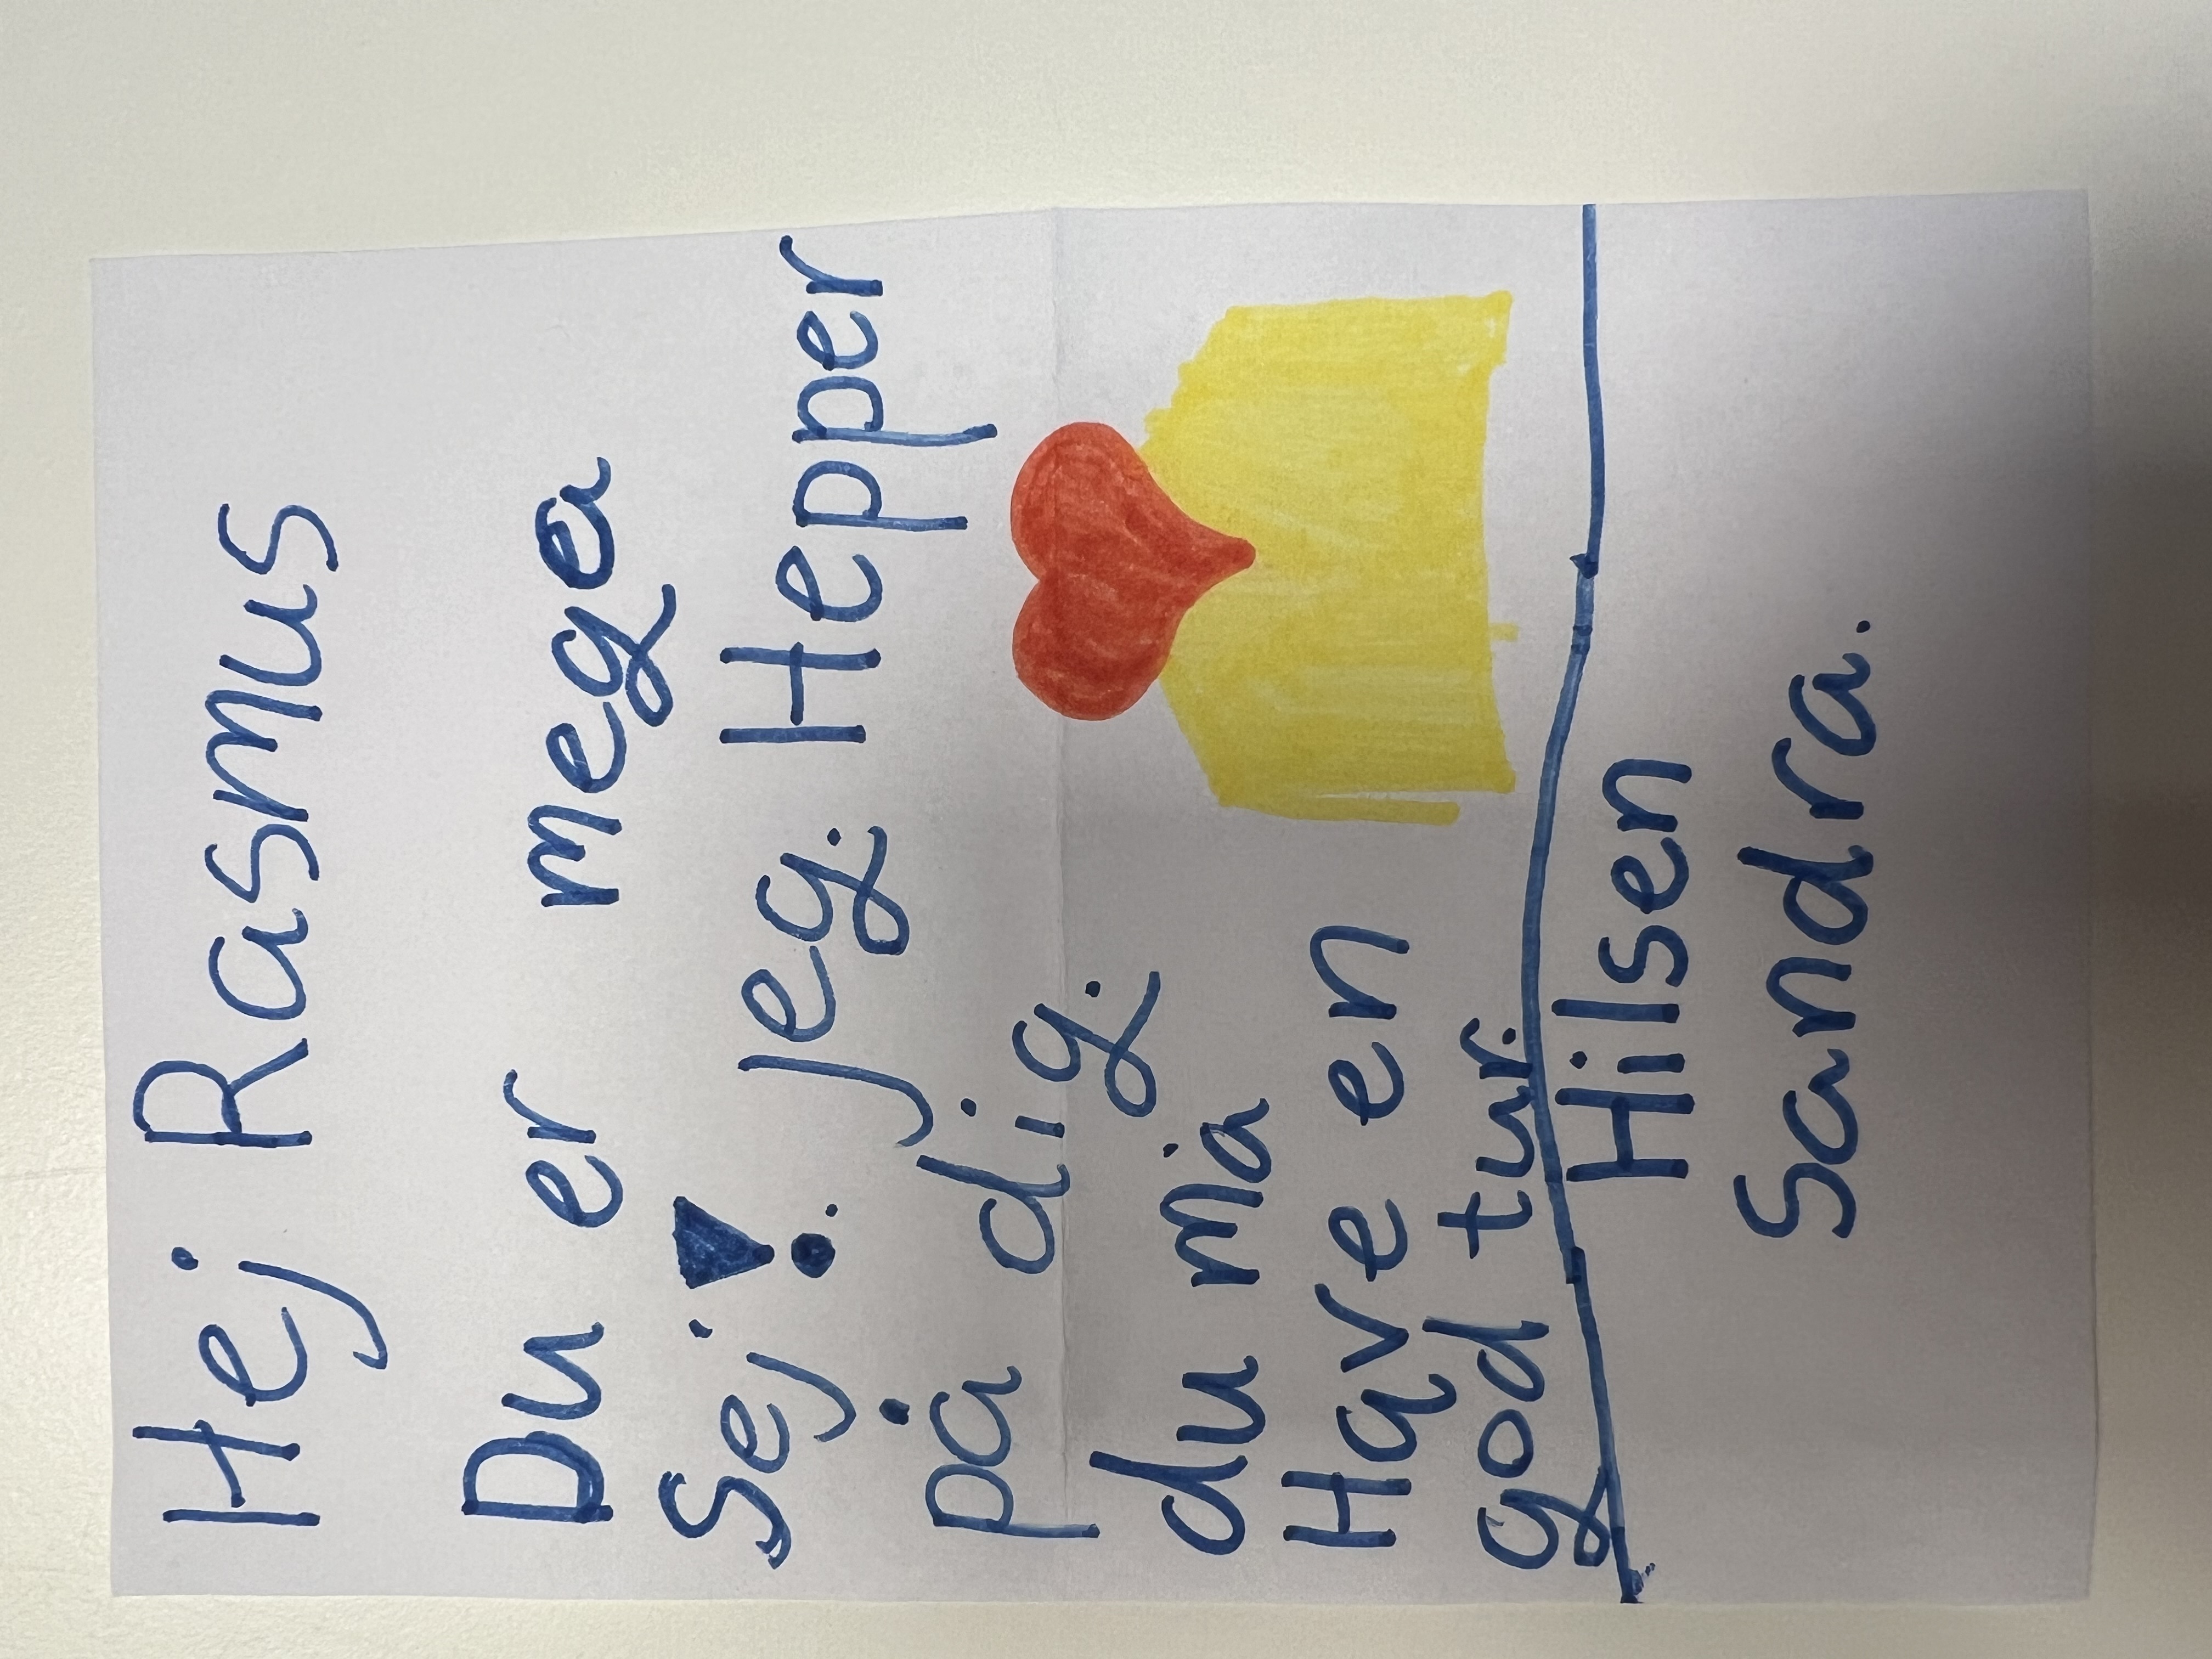 Hej Rasmus
Du er mega
Sej! . jeg. Hepper
på dig.
du må
Have en
god tur.
Hilsen
Sandra.